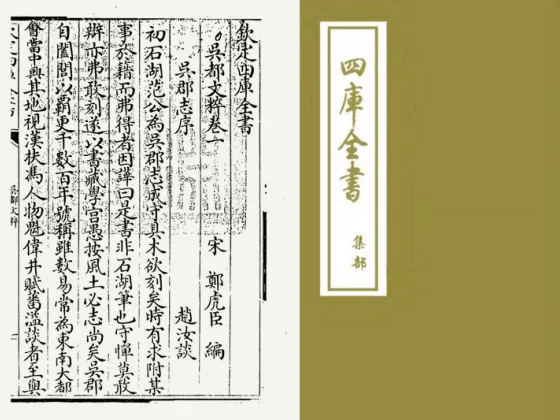 欽定四庫全書
吳都文粹卷一
宋 鄭虎臣 編
吳郡志序
趙汝談
初石湖范公為吳郡志成守具木欲刻矣時有求附某
事於籍而弗得者因譁曰是書非石湖筆也守憚莫敢
辯亦弗敢刻遂以書藏學宮愚按風土必志尚矣吳郡
自闔閭以霸更千數百年號稱雖數易常為東南大都
會當中興其地視漢扶馮人物魁偉井賦蕃溢談者至與
吳都文粹
四庫全書
集部